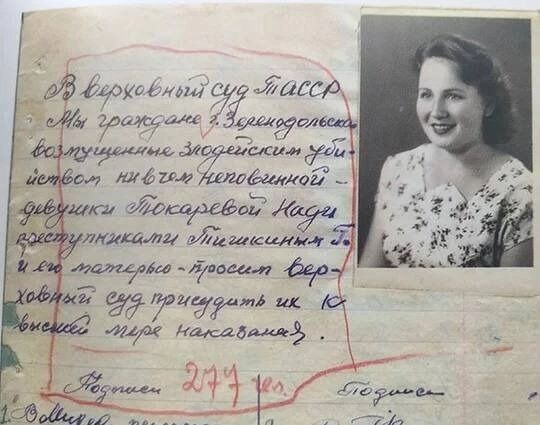 В верховный суд ТАССР
Мы граждане г. Зеленодольска
возмущенные злодейским уби-
йством ни в чем неповинной -
девушки Токаревой Нади
преступниками Тишкиным
и его матерью - просим вер-
ховный суд присудить их к
высшей мере наказания.
Подписи 277 чел. Подписи
1.